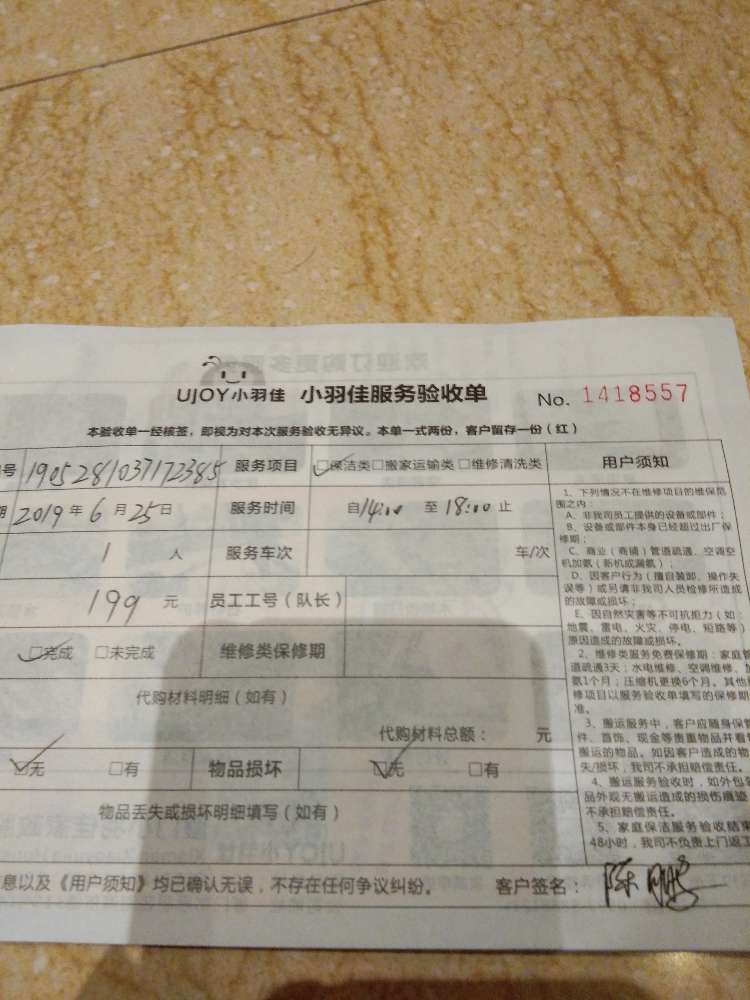 UJOY小羽佳 小羽佳服务验收单 No. 1418557
本验收单一经核签，即视为对本次服务验收无异议。本单一式两份，客户留存一份（红）
号 1905281037172385 服务项目 保洁类 搬家运输类 维修清洗类 用户须知
2019年6月25日 服务时间 自14:00 至18:00止
1 人 服务车次 车/次
199 元 员工工号（队长）
完成 未完成 维修类保修期
代购材料明细（如有）
代购材料总额： 元
无 有 物品损坏 无 有
物品丢失或损坏明细填写（如有）
息以及《用户须知》均已确认无误，不存在任何争议纠纷。 客户签名：陈鹏
1、下列情况不在维修项目的维保范
围之内：
A、非我司员工提供的设备或部件；
B、设备或部件本身已经超过出厂保
修期；
C、商业（商铺）管道疏通、空调空
机加氨（新机或漏氨）；
D、因客户行为（擅自装卸、操作失
误等）或另请非我司人员检修所造成
的故障或损坏；
E、因自然灾害等不可抗拒力（如：
地震、雷电、火灾、停电、短路等）
原因造成的故障或损坏。
2、维修类服务免费保修期：家庭管
道疏通3天；水电维修、空调维修、加
氨1个月；压缩机更换6个月。其他维
修项目以服务验收单填写的保修期
准。
3、搬运服务中，客户应随身保管
件、首饰、现金等贵重物品并看管
搬运的物品。如因客户造成的物
失/损坏，我司不承担赔偿责任。
4、搬运服务验收时，如外包装
品外观无搬运造成的损伤痕迹
不承担赔偿责任。
5、家庭保洁服务验收结束
48小时，我司不负责上门返工